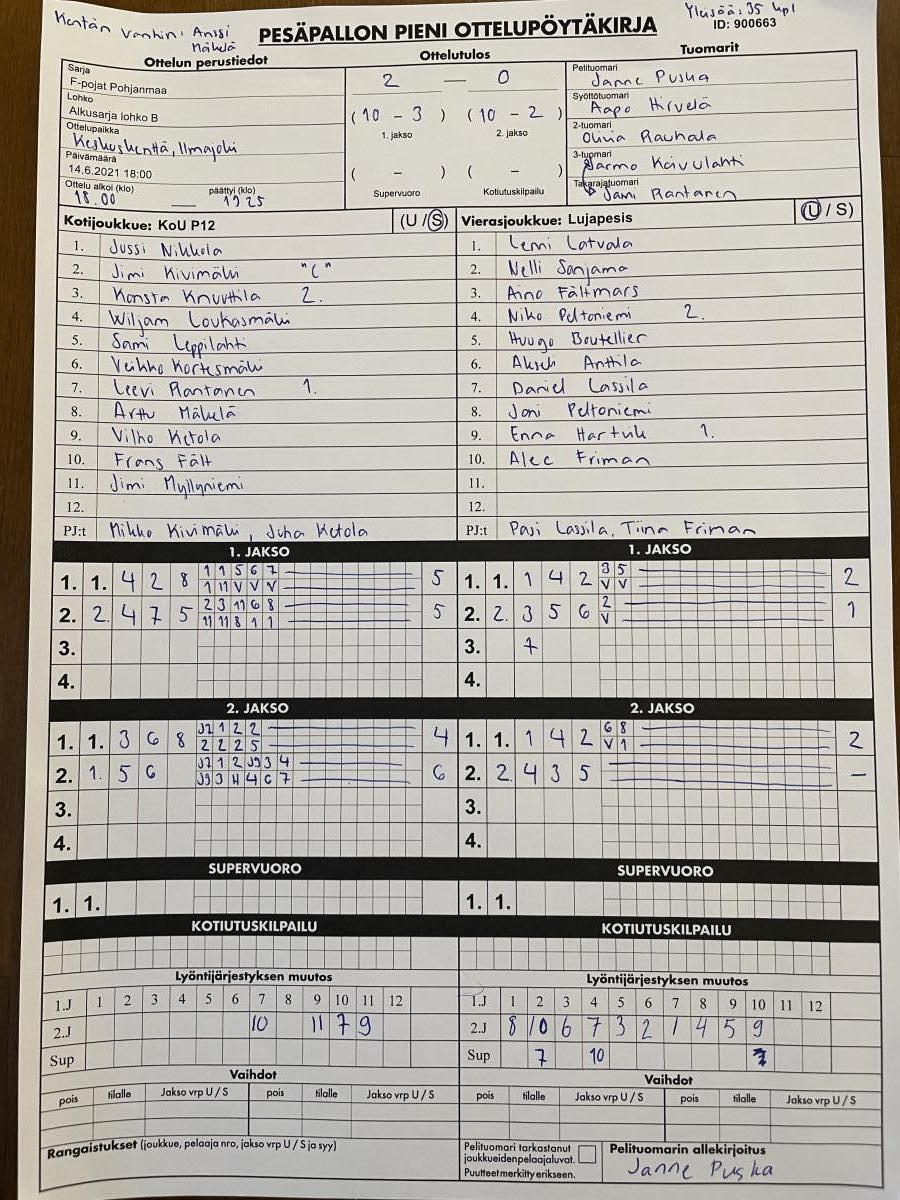 Kentän vanhin: Anssi Mäkelä
Yleisöä: 35 kpl
PESÄPALLON PIENI OTTELUPÖYTÄKIRJA
ID: 900663
Ottelun perustiedot
Ottelutulos
Tuomarit
Sarja
F-pojat Pohjanmaa
Lohko
Alkusarja lohko B
Ottelupaikka
Keskuskenttä, Ilmajoki
Päivämäärä
14.6.2021 18:00
Ottelu alkoi (klo) päättyi (klo)
18.00 — 1925
2 — 0
(10 - 3) (10 - 2)
1. jakso 2. jakso
( - ) ( - )
Supervuoro Kotiutuskilpailu
Pelituomari
Janne Puska
Syöttötuomari
Aapo Hirvelä
2-tuomari
Olivia Rauhala
3-tuomari
Jarmo Koivulahti
Takarajatuomari
Jami Rantanen
Kotijoukkue: KoU P12 (U / S)
1. Jussi Nikkola
2. Jimi Kivimäki "C"
3. Konsta Knuuttila 2.
4. Wiljam Loukasmäki
5. Sami Leppilahti
6. Veikko Kortesmäki
7. Leevi Rantanen 1.
8. Arttu Mäkelä
9. Vilho Ketola
10. Frans Fält
11. Jimi Myllyniemi
12.
PJ:t Mikko Kivimäki, Juha Ketola
Vierasjoukkue: Lujapesis (U / S)
1. Lenni Latvala
2. Nelli Sanjama
3. Aino Fältmars
4. Niko Peltoniemi 2.
5. Huugo Boutellier
6. Akseli Anttila
7. Daniel Lassila
8. Joni Peltoniemi
9. Enna Hartvik 1.
10. Alec Friman
11.
12.
PJ:t Pasi Lassila, Tiina Friman
1. JAKSO
1. 1. 4 2 8 1 1 5 6 7 5
1 11 V V V
2. 2. 4 7 5 2 3 11 6 8 5
11 11 8 1 1
3.
4.
1. JAKSO
1. 1. 1 4 2 3 5 2
V V
2. 2. 3 5 6 2 1
V
3. 7
4.
2. JAKSO
1. 1. 3 6 8 J7 1 2 2 4
2 2 2 5
2. 1. 5 6 J7 1 2 J9 3 4 6
J9 3 4 4 6 7
3.
4.
2. JAKSO
1. 1. 1 4 2 6 8 2
V 1
2. 2. 4 3 5 –
3.
4.
SUPERVUORO
1. 1.
SUPERVUORO
1. 1.
KOTIUTUSKILPAILU
KOTIUTUSKILPAILU
Lyöntijärjestyksen muutos
1.J 1 2 3 4 5 6 7 8 9 10 11 12
2.J 10 11 7 9
Sup
Lyöntijärjestyksen muutos
1.J 1 2 3 4 5 6 7 8 9 10 11 12
2.J 8 10 6 7 3 2 1 4 5 9
Sup 7 10
Vaihdot
pois tilalle Jakso vrp U / S pois tilalle Jakso vrp U / S
Vaihdot
pois tilalle Jakso vrp U / S pois tilalle Jakso vrp U / S
Rangaistukset (joukkue, pelaaja nro, jakso vrp U / S ja syy)
Pelituomari tarkastanut
joukkueiden pelaajaluvat.
Puutteet merkitty erikseen.
Pelituomarin allekirjoitus
Janne Puska